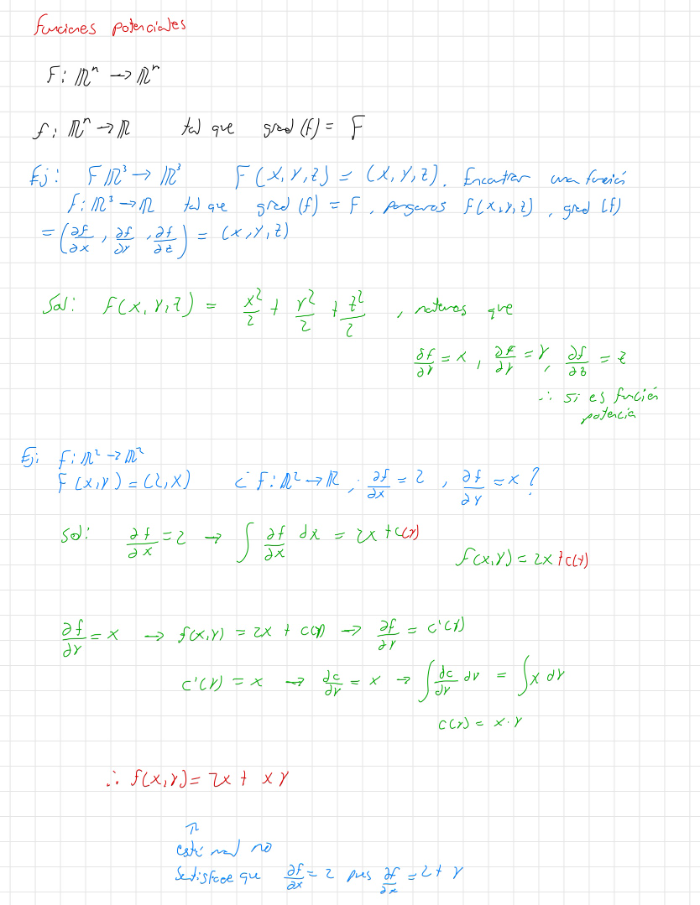 Funciones potenciales
F: ℝⁿ → ℝⁿ
f: ℝⁿ → ℝ tal que grad (f) = F
Ej: F ℝ³ → ℝ³ F(x, y, z) = (x, y, z). Encontrar una función
f: ℝ³ → ℝ tal que grad (f) = F, pongamos f(x, y, z), grad (f)
= (∂f/∂x, ∂f/∂y, ∂f/∂z) = (x, y, z)
Sol: f(x, y, z) = x²/2 + y²/2 + z²/2, notemos que
∂f/∂y = x, ∂f/∂y = y, ∂f/∂z = z
∴ si es función
potencia
Ej: f: ℝ² → ℝ²
F(x, y) = (2, x) ¿ f: ℝ² → ℝ, ∂f/∂x = 2, ∂f/∂y = x ?
Sol: ∂f/∂x = 2 → ∫ ∂f/∂x dx = 2x + c(y)
f(x, y) = 2x + c(y)
∂f/∂y = x → f(x, y) = 2x + c(y) → ∂f/∂y = c'(y)
c'(y) = x → dc/dy = x → ∫ dc/dy dy = ∫ x dy
c(y) = x·y
∴ f(x, y) = 2x + xy
⇑
está mal no
satisface que ∂f/∂x = 2 pues ∂f/∂x = 2 + y